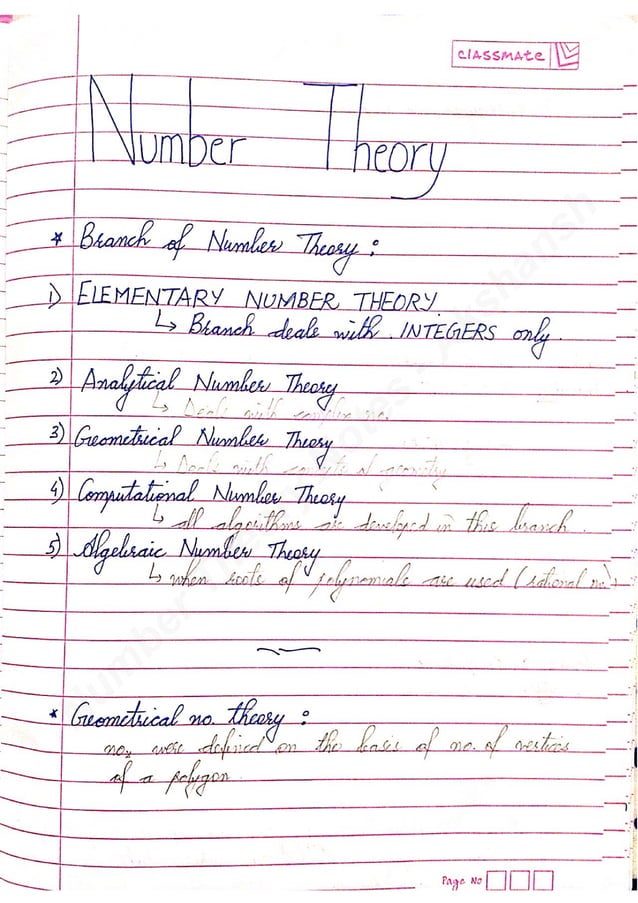 classmate
Number Theory
* Branch of Number Theory :
1) ELEMENTARY NUMBER THEORY.
↳ Branch deals with INTEGERS only.
2) Analytical Number Theory
↳ Deals with complex no.
3) Geometrical Number Theory
↳ Deals with concepts of geometry
4) Computational Number Theory
↳ all algorithms are developed in this branch.
5) Algebraic Number Theory
↳ when roots of polynomials are used (rational no.)
* Geometrical no. theory :
nos. were defined on the basis of no. of vertices
of a polygon
Page No